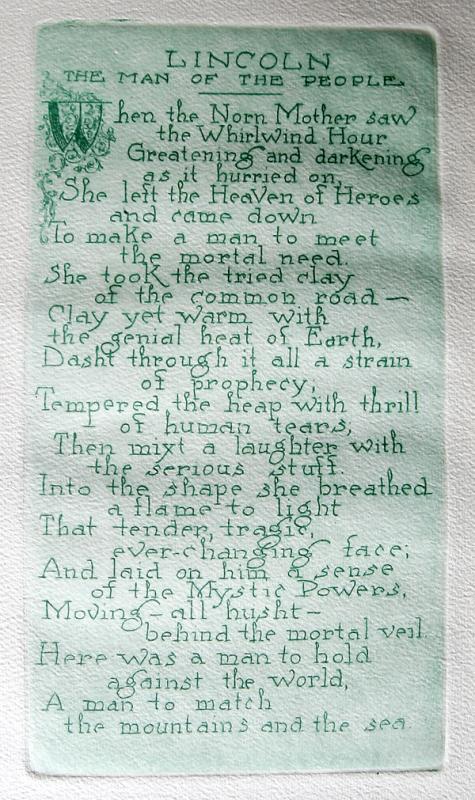 LINCOLN
THE MAN OF THE PEOPLE
When the Norn Mother saw
the Whirlwind Hour
Greatening and darkening
as it hurried on,
She left the Heaven of Heroes
and came down
To make a man to meet
the mortal need.
She took the tried clay
of the common road—
Clay yet warm with
the genial heat of Earth,
Dasht through it all a strain
of prophecy;
Tempered the heap with thrill
of human tears;
Then mixt a laughter with
the serious stuff.
Into the shape she breathed
a flame to light
That tender, tragic,
ever-changing face;
And laid on him a sense
of the Mystic Powers,
Moving—all husht—
behind the mortal veil.
Here was a man to hold
against the world,
A man to match
the mountains and the sea.